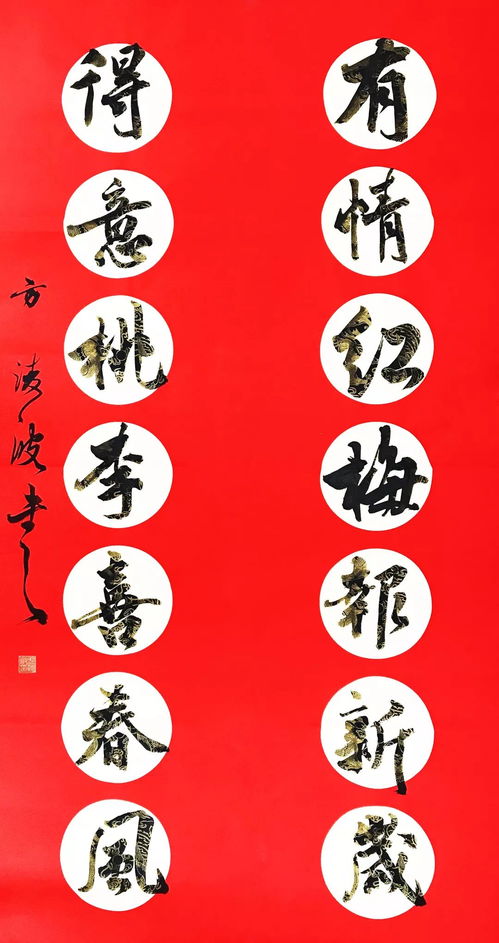 有情红梅报新岁
得意桃李喜春风
方凌波书